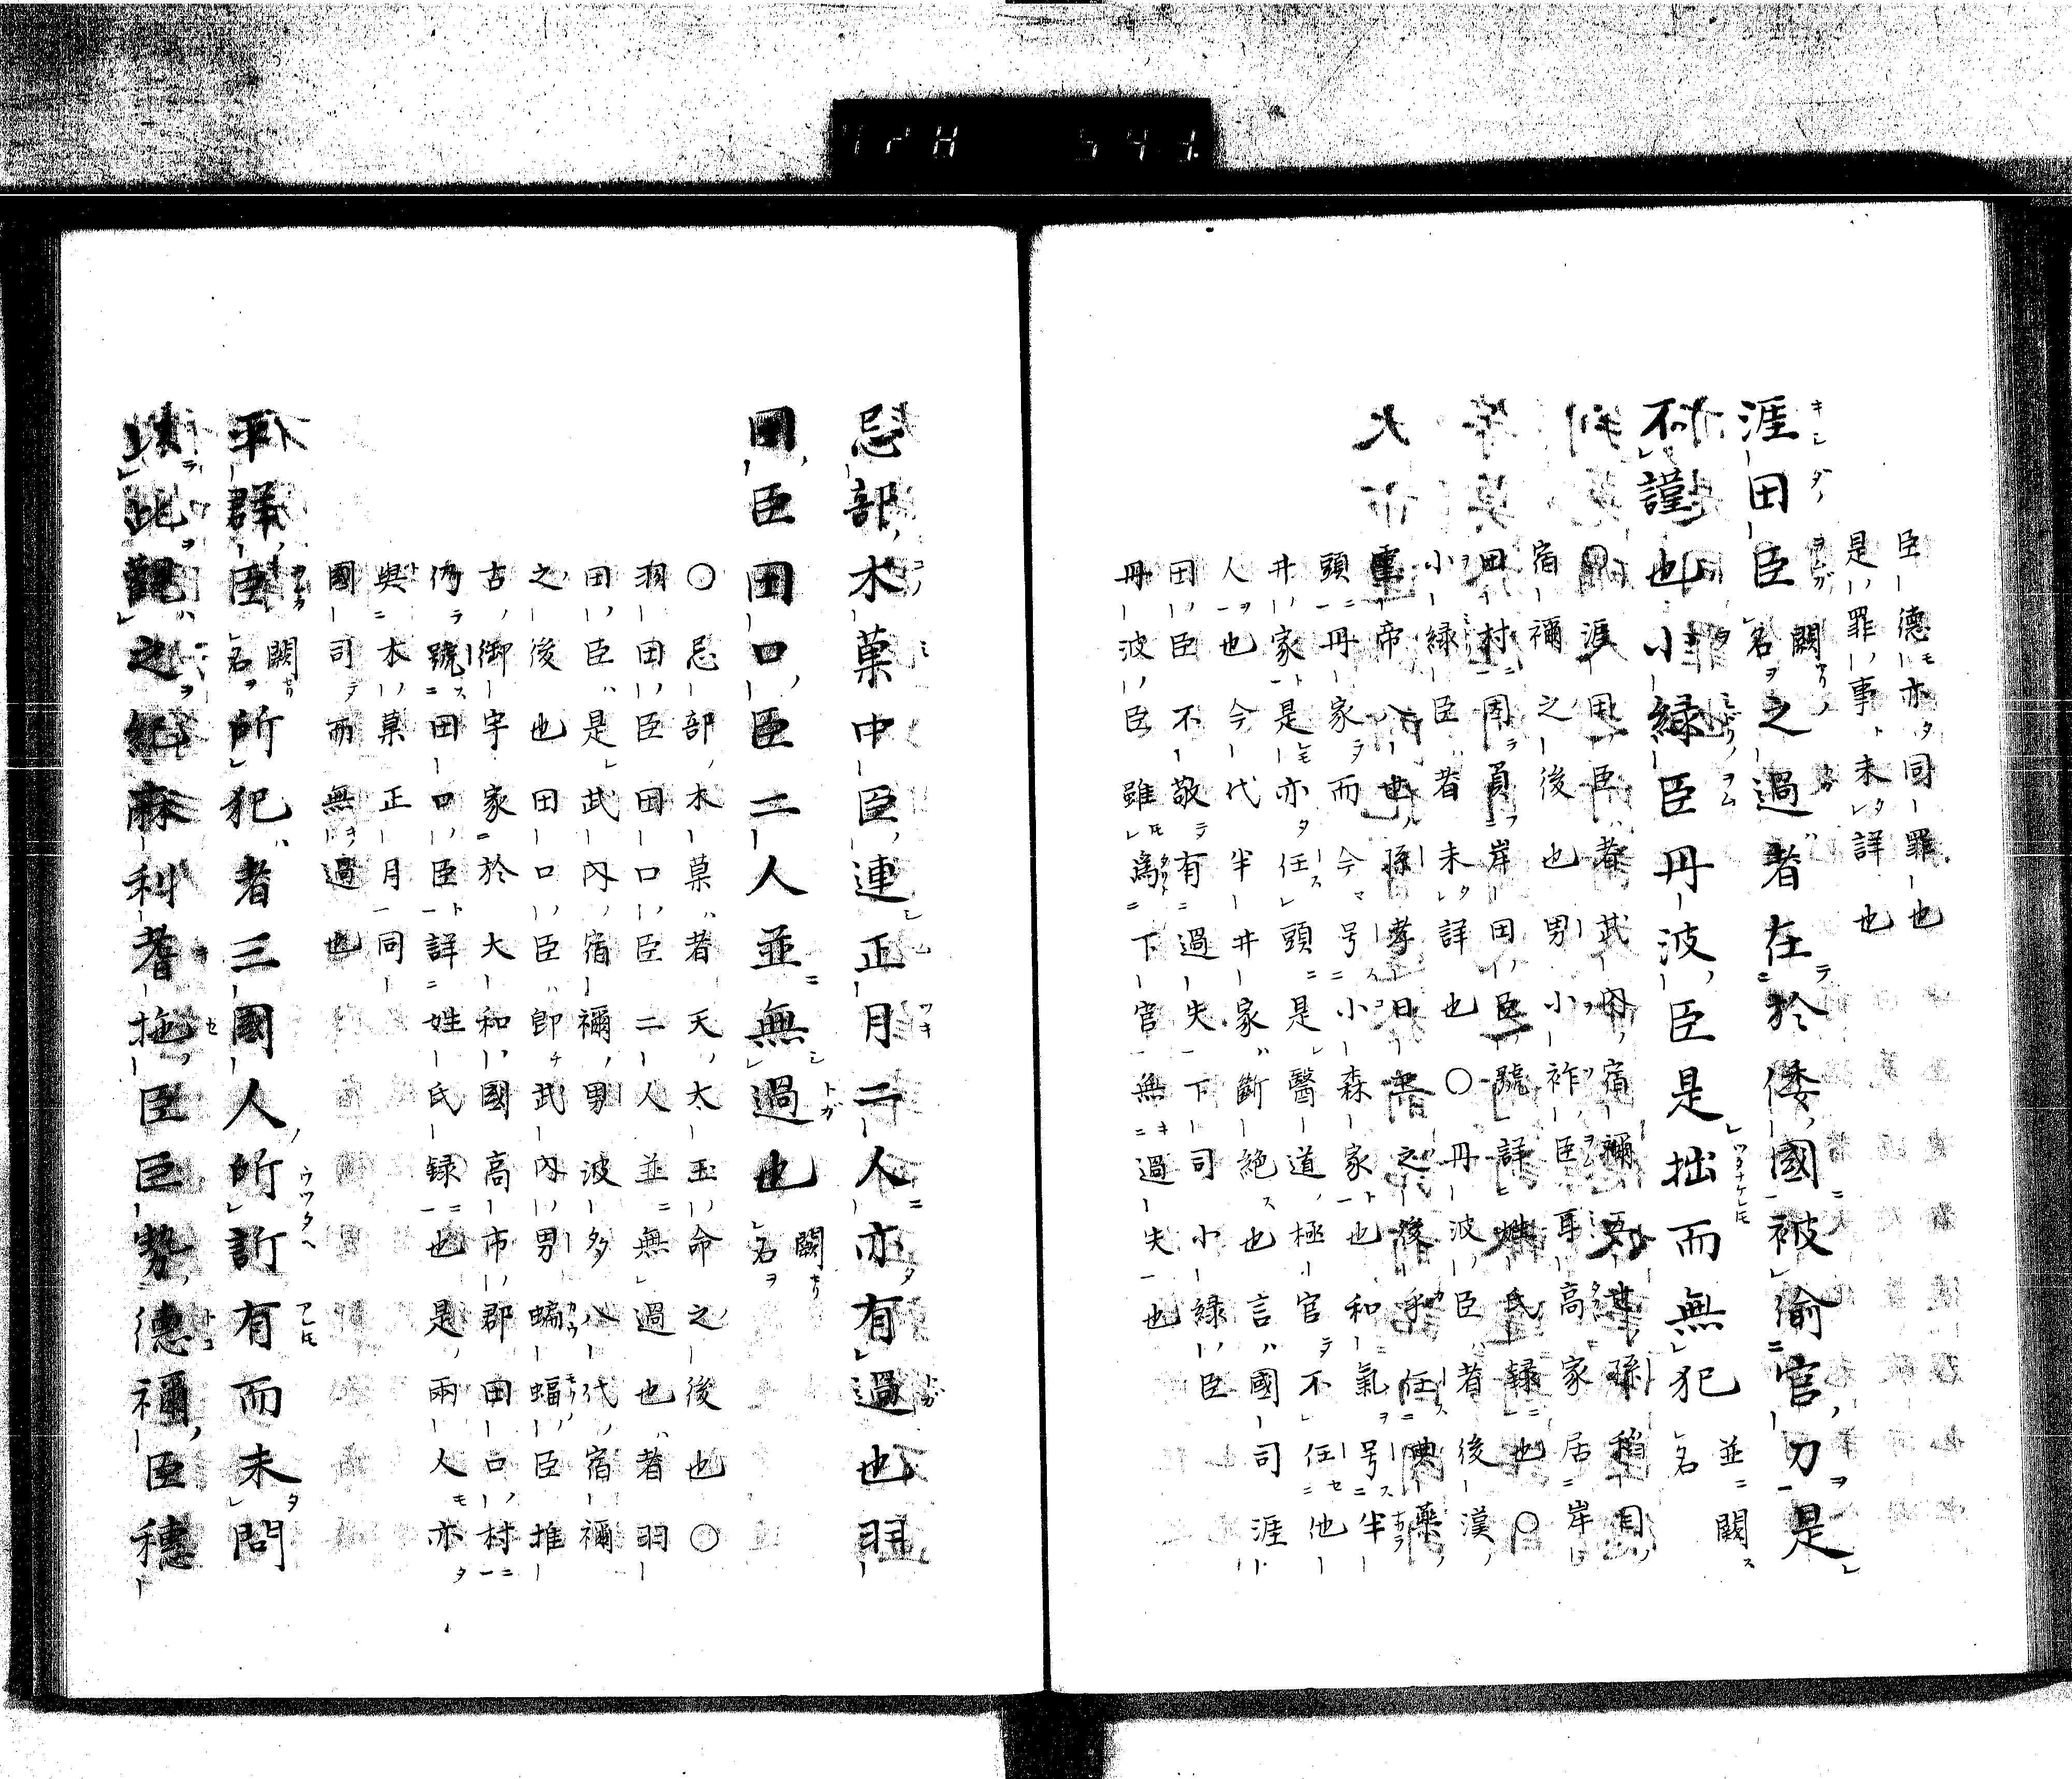 臣德亦同罪也
是罪事未詳也
涯田臣闕名之過者在於倭國被偷官刀是
不謹也小緑臣丹波臣是拙而無犯並闕名
○涯田臣者武內宿禰五世孫稻目
宿禰之後也男小祚臣耳高家居岸
田村因負岸田臣號詳姓氏録也○
小緑臣者未詳也○丹波臣者後漢
靈帝八也孫孝日書之後乎任典藥
頭丹家而今号小森家也和氣号半
井家是亦任頭是醫道極官不任他
人也今代半井家斷絶也言國司涯
田臣不敬有過失下司小緑臣
丹波臣雖爲下官無過失也
忌部木菓中臣連正月二人亦有過也羽
田臣田口臣二人並無過也闕名
○忌部木菓者天太玉命之後也○
羽田臣田口臣二人並無過也者羽
田臣是武內宿禰男波多八代宿禰
之後也田口臣卽武內男蝙蝠臣推
古御宇家於大和國高市郡田口村
仍號田口臣詳姓氏録也是兩人亦
與木菓正月同
國司而無過也
平群臣闕名所犯者三國人所訴有而未問
以此觀之紀麻利耆拖臣巨勢德禰臣穗